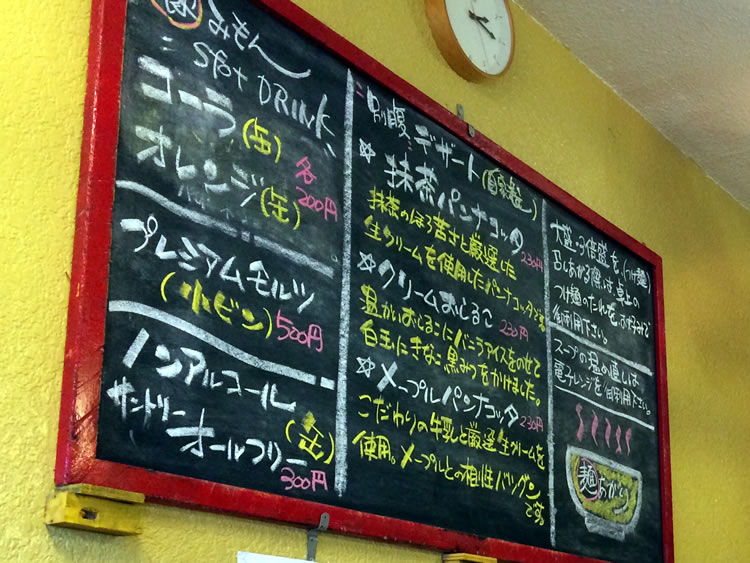 飲みもん
Soft DRINK
コーラ(缶)
オレンジ(缶)
各
200円
プレミアムモルツ
(小ビン) 500円
ノンアルコール
サントリー
オールフリー
(缶)
300円
別腹 デザート(自家製)
☆抹茶パンナコッタ
230円
抹茶のほろ苦さと厳選した
生クリームを使用したパンナコッタです
☆クリームおしるこ
230円
温かいおしるこにバニラアイスをのせて
白玉にきなこ黒みつをかけました。
☆メープルパンナコッタ
230円
こだわりの牛乳と厳選生クリームを
使用。メープルとの相性バツグン
です。
大盛・3倍盛を(つけ麺)
召しあがる際は卓上の
つけ麺のたれをお好みで
御利用下さい。
スープの温め直しは
電子レンジを御利用下さい。
麺あがり